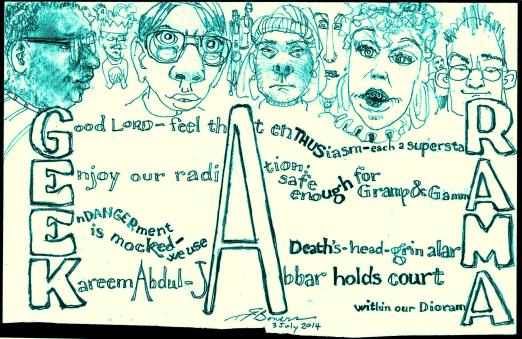 Good LORD—feel thAt enTHUSiasm—each a superstaR
Enjoy our radiAtion; safe enough for Gramp & GammA
EnDANGERment is mocked—we use Death's-head-grin alarM
Kareem Abdul-JAbbar holds court within our DioramA
3 July 2014